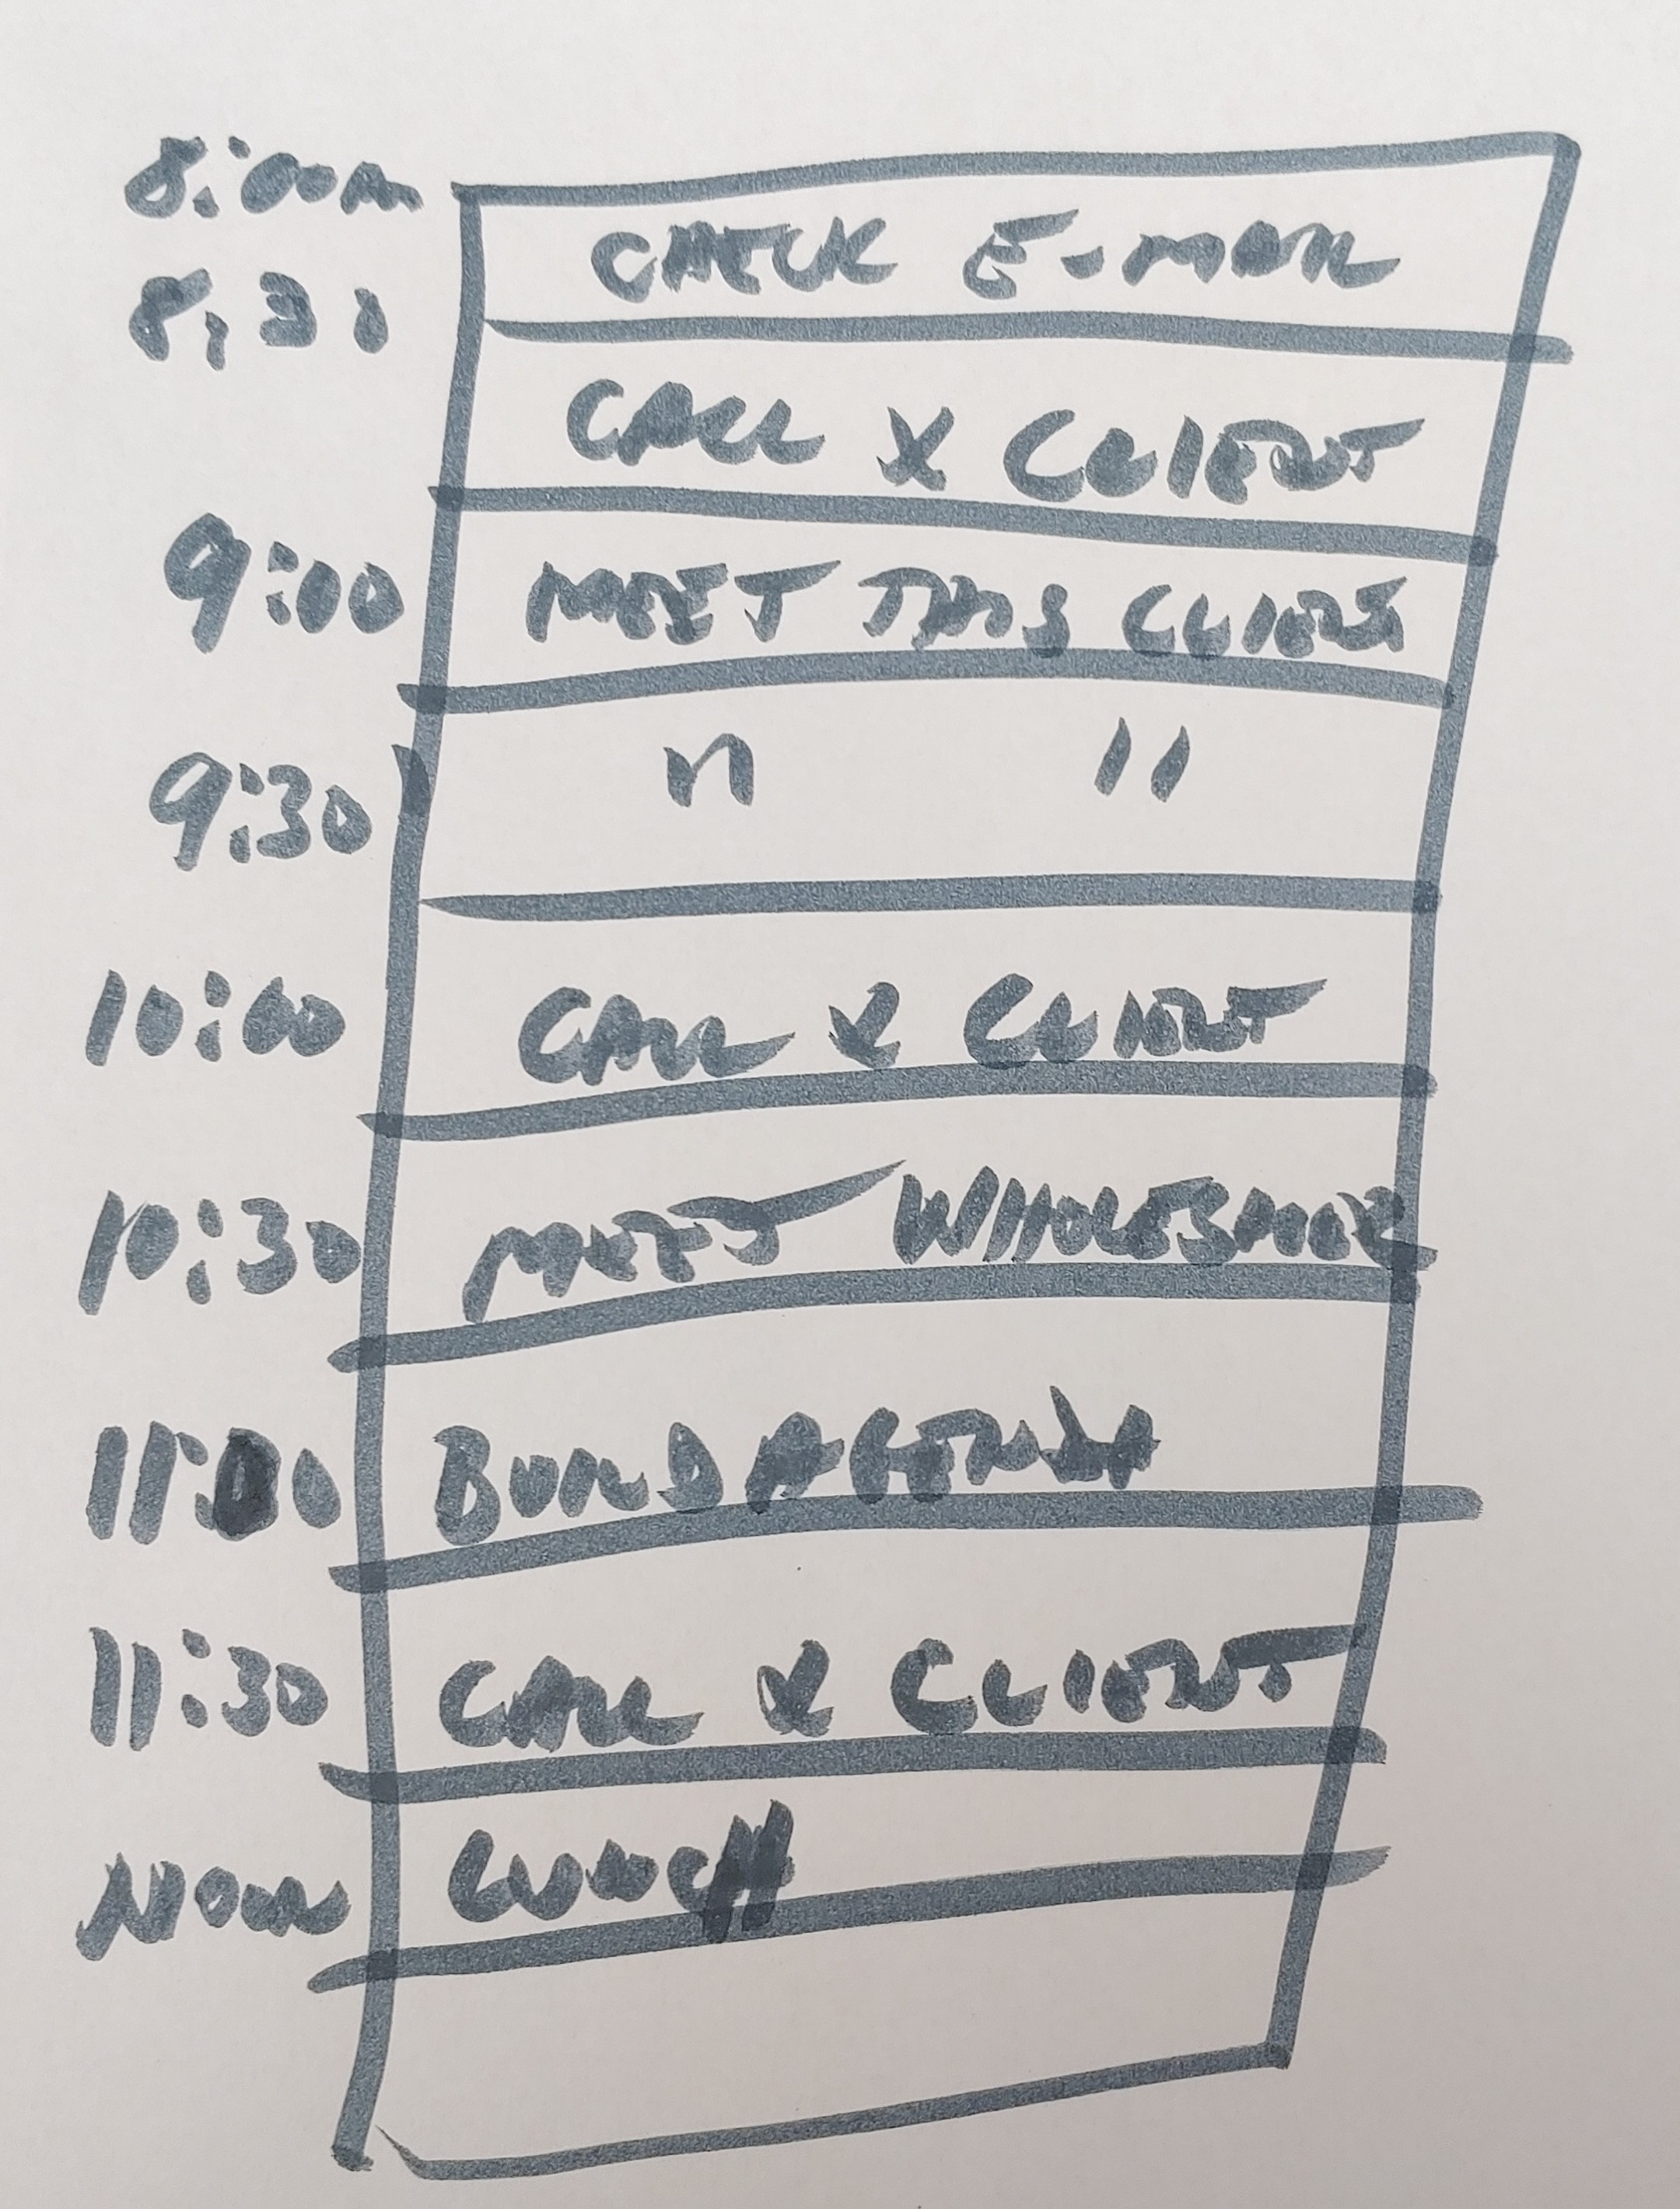 8:00am CHECK E-MAIL
8:30 CALL X CLIENT
9:00 MEET THIS CLIENT
9:30 " "
10:00 CALL X CLIENT
10:30 MEET WHOLESALER
11:00 BUILD AGENDA
11:30 CALL X CLIENT
NOON LUNCH